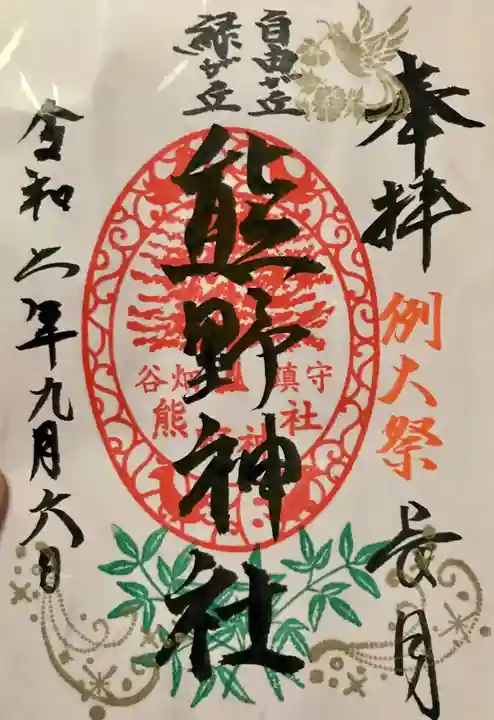 奉拝
例大祭
長月
自由が丘
緑が丘
熊野神社
谷畑 鎮守
熊野神社
令和 年九月六日